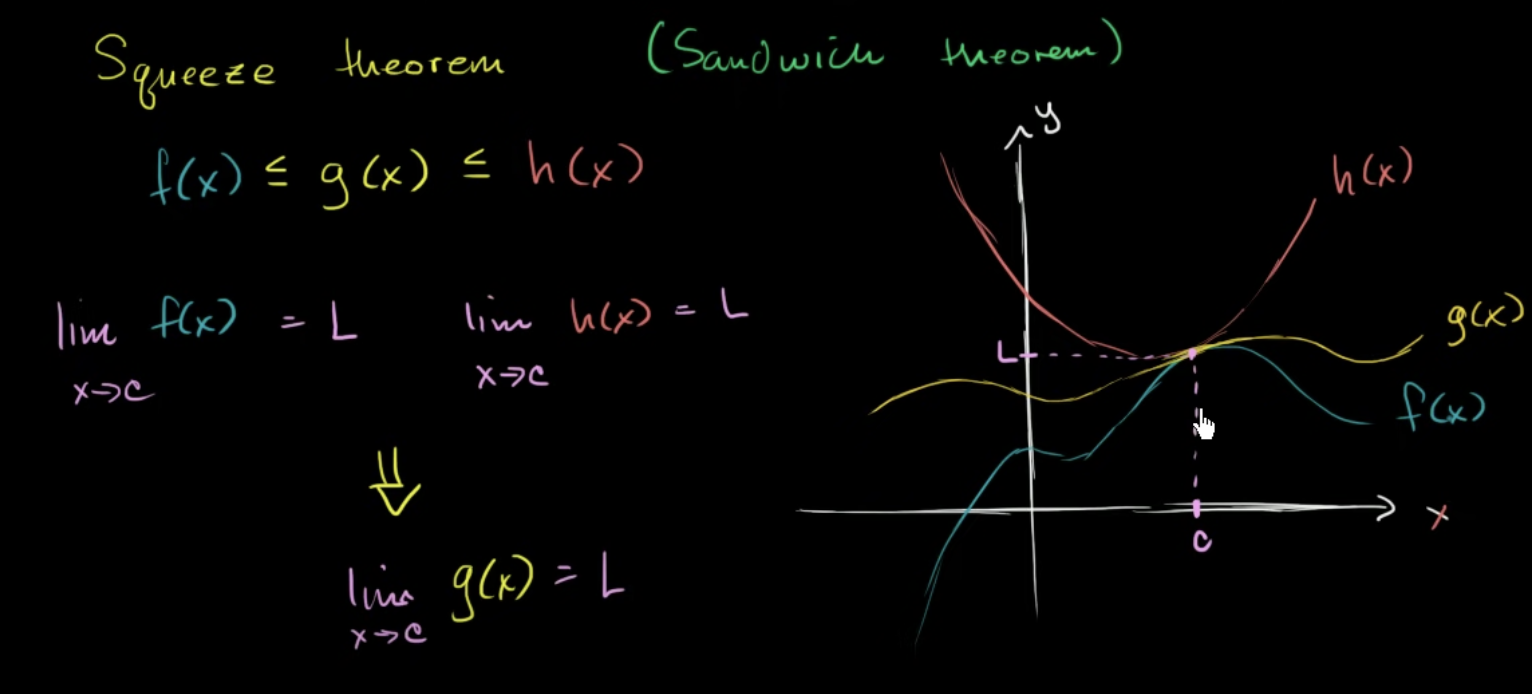 Squeeze theorem (Sandwich theorem)
f(x) ≤ g(x) ≤ h(x)
lim f(x) = L
x→c
lim h(x) = L
x→c
⇓
lim g(x) = L
x→c
y
h(x)
g(x)
L
f(x)
x
c